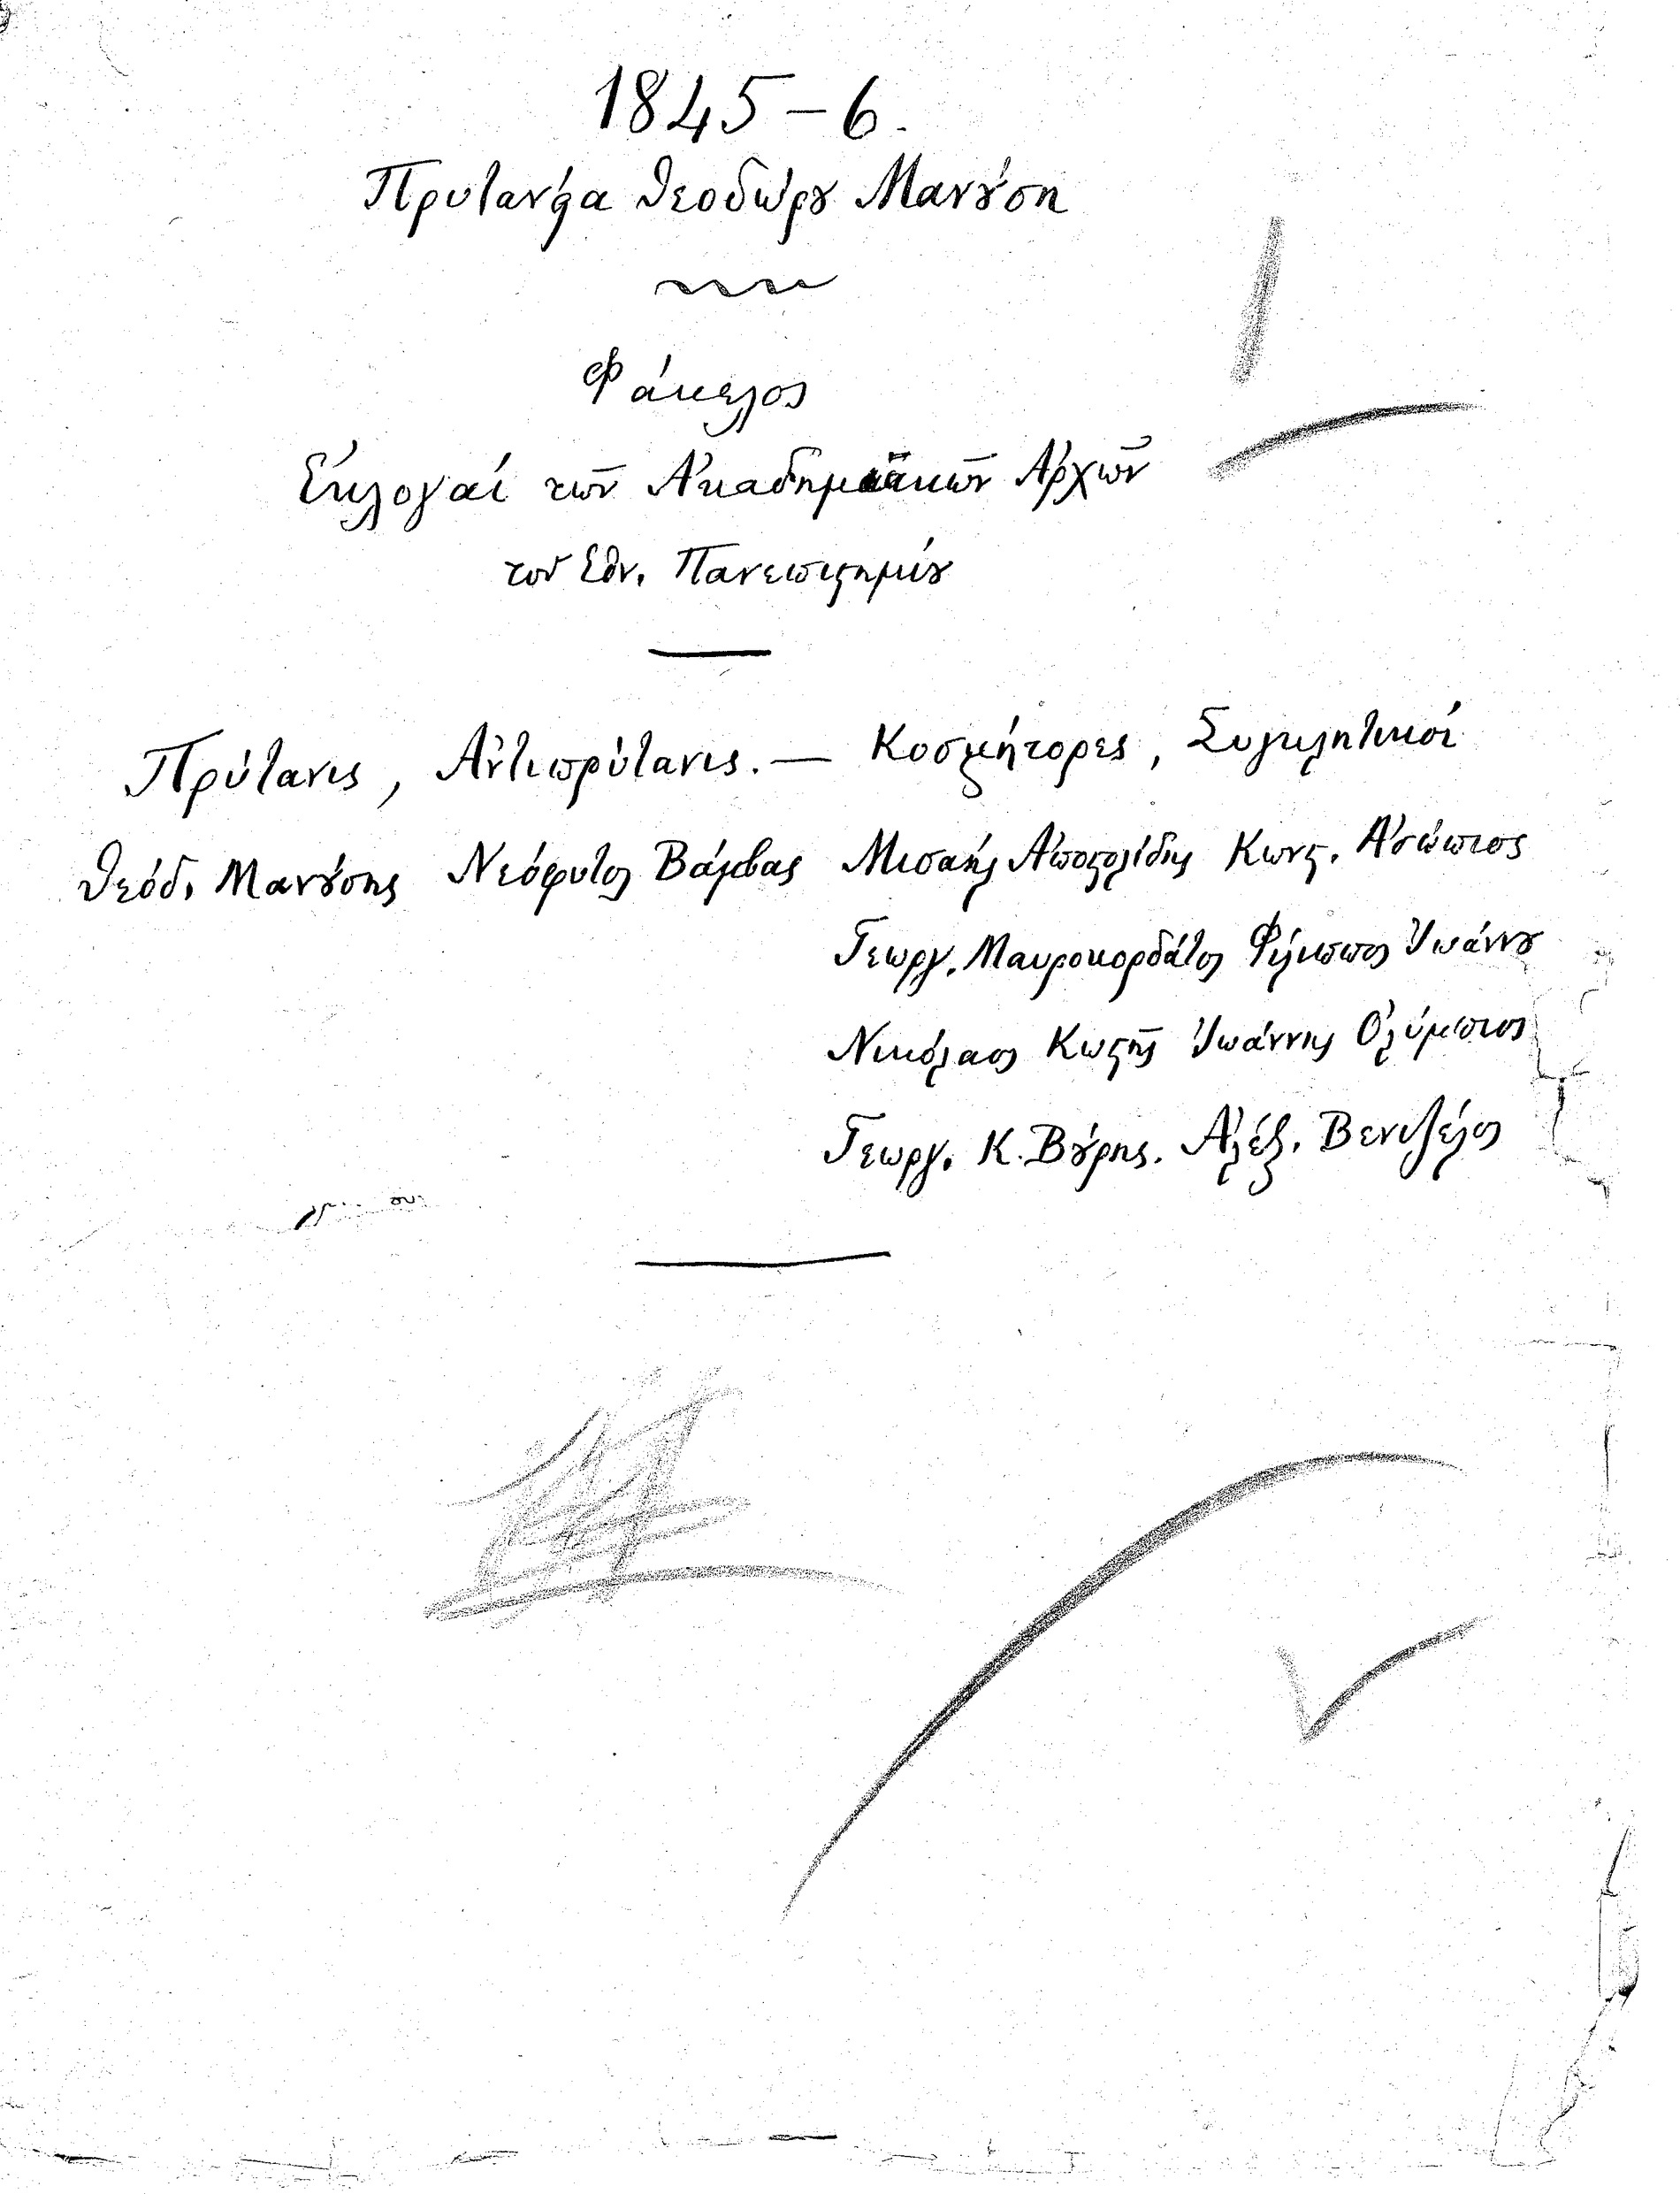 1845 – 6.
Πρυτανεία Θεοδώρου Μανούση
Φάκελος
Ἐκλογαί τῶν Ἀκαδημαϊκῶν Ἀρχῶν
τοῦ Ἐθν. Πανεπιστημίου
Πρύτανις, Ἀντιπρύτανις. — Κοσμήτορες, Συγκλητικοί
Θεόδ. Μανούσης Νεόφυτος Βάμβας Μισαήλ Ἀποστολίδης Κωνστ. Ἀσώπιος
Γεωργ. Μαυροκορδάτος Φίλιππος Ἰωάννου
Νικόλαος Κωστῆς Ἰωάννης Ὀλύμπιος
Γεωργ. Κ. Βούρης. Ἀλέξ. Βενιζέλος